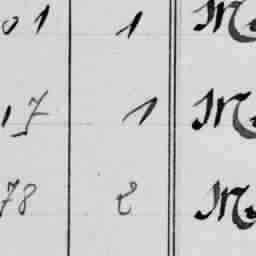 01 1 M
17 1 M
78 2 M